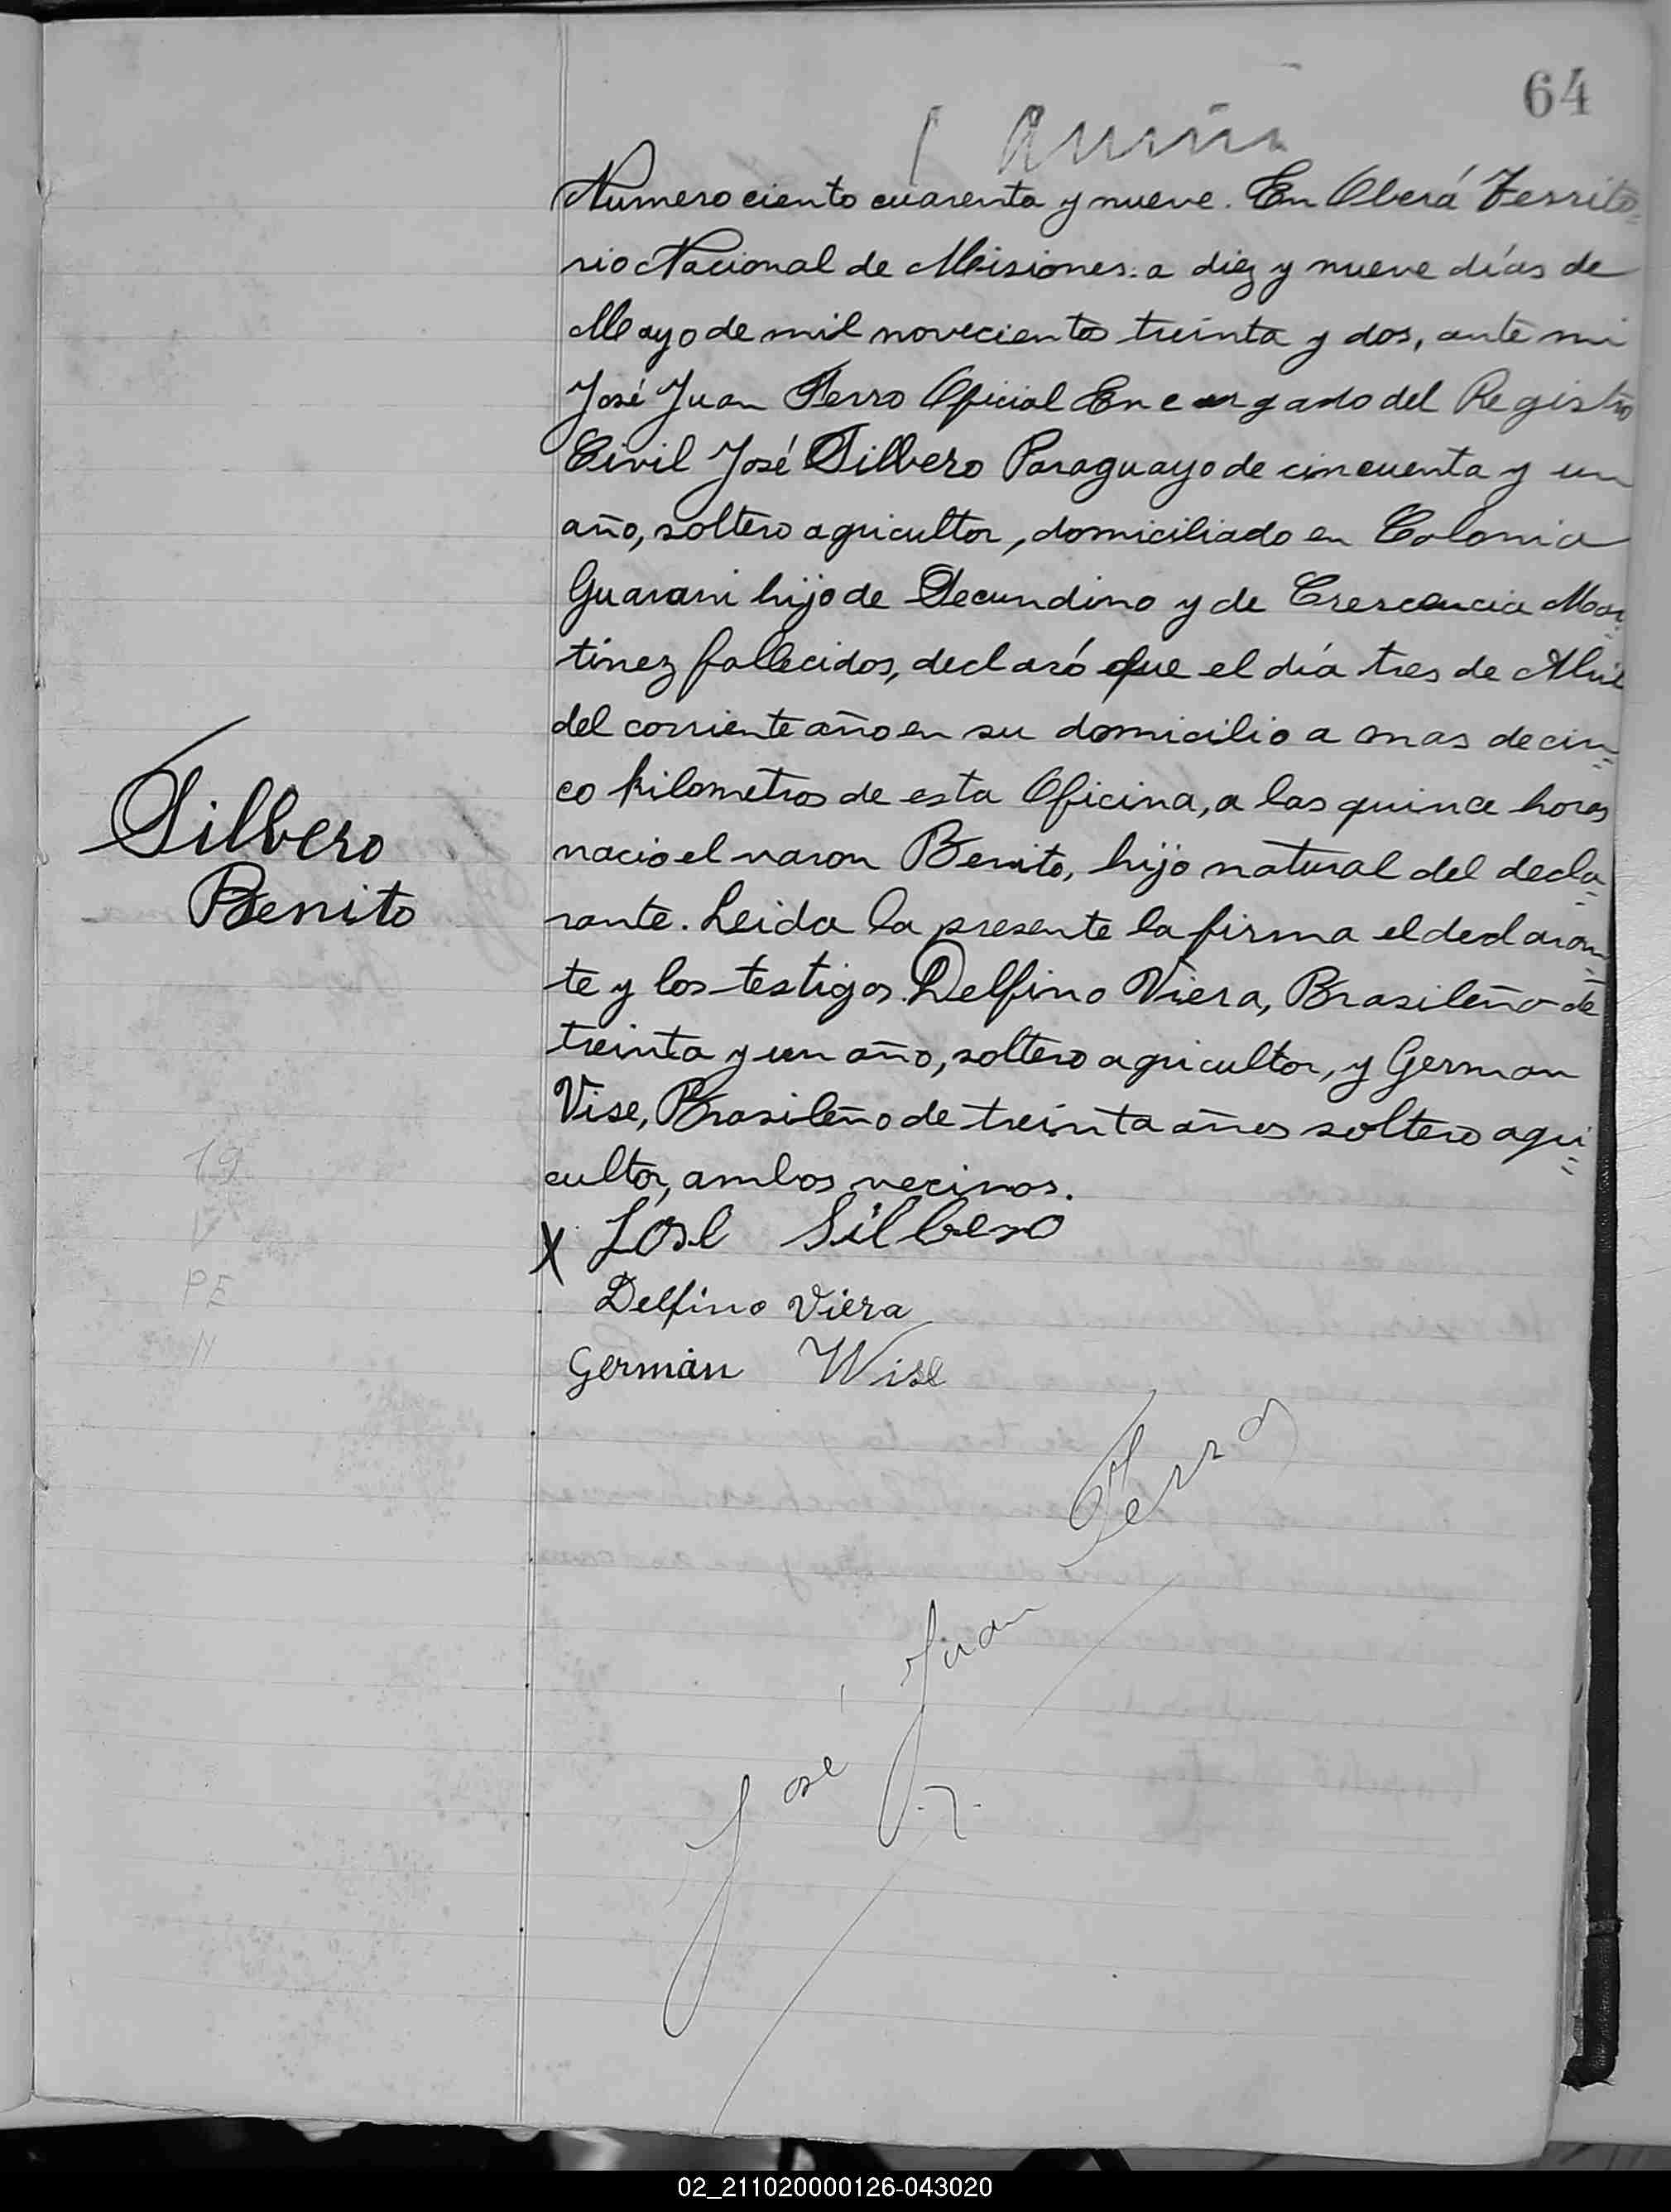 64
Numero ciento cuarenta y nueve. En Oberá Territo=
rio Nacional de Misiones: a diez y nueve días de
Mayo de mil noveciento treinta y dos, ante mi
José Juan Ferro Oficial Encargado del Registro
Civil José Silbero Paraguayo de cincuenta y un
año, soltero agricultor, domiciliado en Colonia
Guarani hijo de Secundino y de Crescencia Mar=
tinez fallecidos, declaró que el día tres de Abril
del corriente año en su domicilio a mas de cin=
co kilometros de esta Oficina, a las quince horas
nacio el varon Benito, hijo natural del decla=
rante. Leida la presente la firma el declaran=
te y los testigos Delfino Viera, Brasileño de
treinta y un año, soltero agricultor, y German
Vise, Brasileño de treinta años soltero agri=
cultor, ambos vecinos.
Silbero
Benito
19
V
PE
11
X José Silbero
Delfino Viera
Germán Wise
José Juan Ferro
02_211020000126-043020